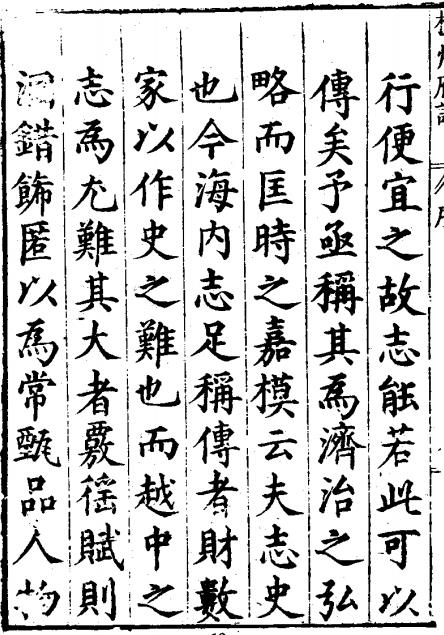 行便宜之故志能若此可以
傳矣予亟稱其為濟治之弘
略而匡時之嘉模云夫志史
也今海内志足稱傳者財數
家以作史之難也而越中之
志為尤難其大者覈徭賦則
錯飾匿以為常甄品人物